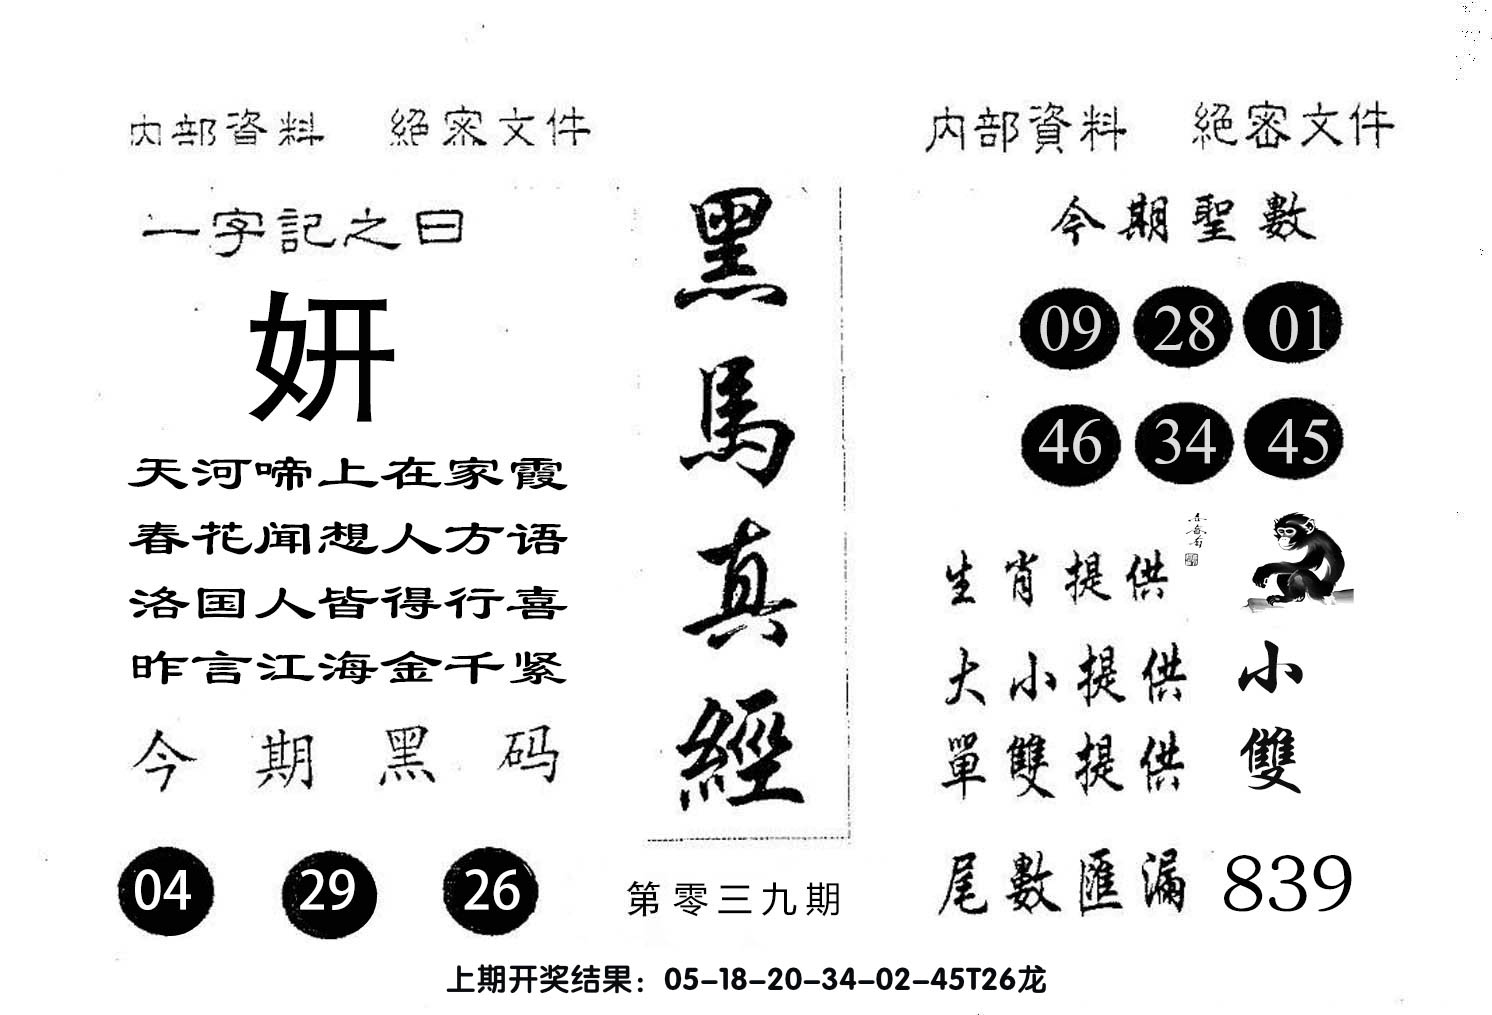 内部資料 絕密文件
一字記之曰
妍
天河啼上在家霞
春花闻想人方语
洛国人皆得行喜
昨言江海金千紧
今期黑码
04 29 26
黑馬真經
第零三九期
内部資料 絕密文件
今期聖數
09 28 01
46 34 45
生肖提供
大小提供 小
單雙提供 雙
尾數匯漏 839
上期开奖结果：05-18-20-34-02-45T26龙